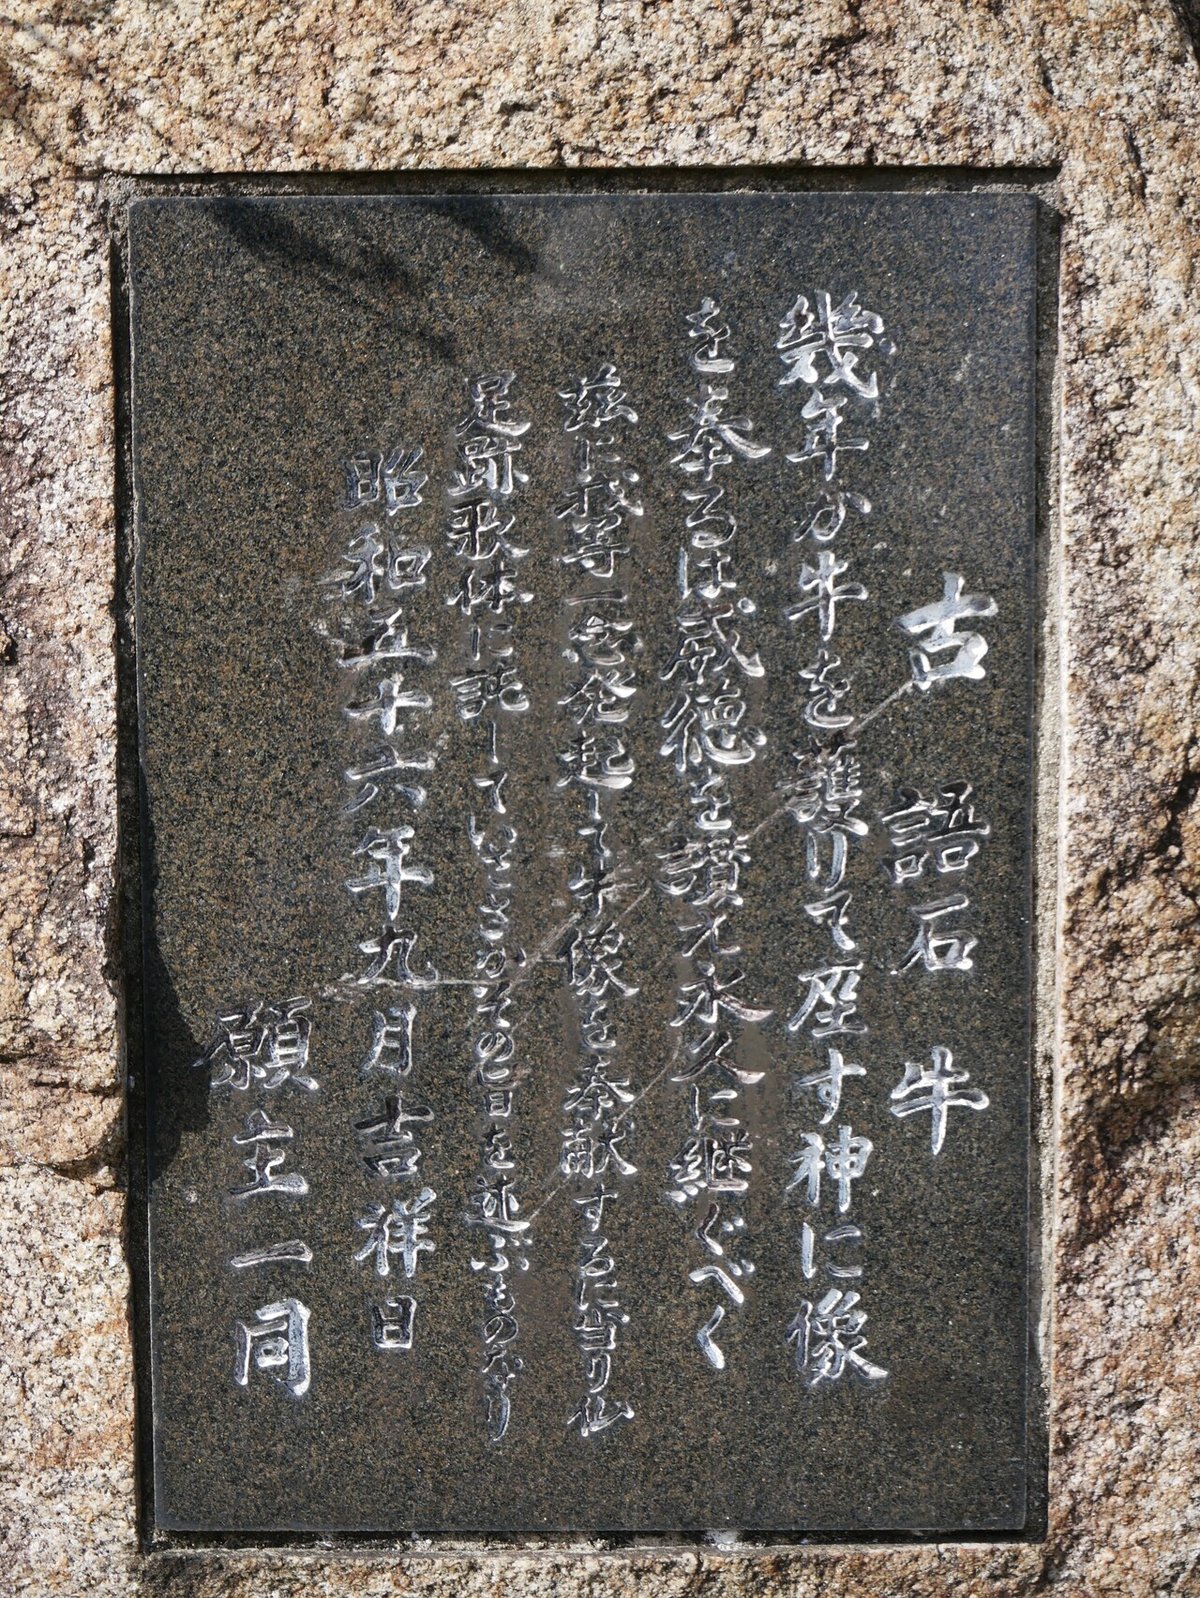 古語石牛
幾年か牛を護りて座す神に像
を奉るは威徳を讃え永久に継ぐべく
茲に我等一念発起して牛像を奉献するに当り仏
足跡歌体に託していささかその旨を述ぶものなり
昭和五十六年九月吉祥日
願主一同